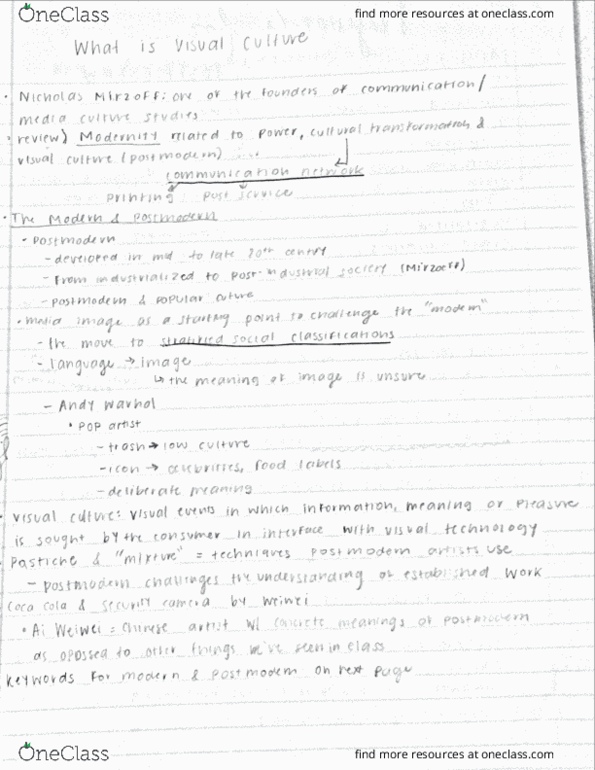 OneClass
find more resources at oneclass.com
What is visual culture
• Nicholas Mirzoff: one of the founders of communication/
media culture studies
• review) Modernity related to power, cultural transformation, &
visual culture (postmodern)
communication network
printing post service
• The Modern & Postmodern
• postmodern
- developed in mid to late 20th century
- From industrialized to post-industrial society (Mirzoeff)
- postmodern & popular culture
• media image as a starting point to challenge the "modern"
- the move to stratified social classifications
- language → image
↳ the meaning of image is unsure
- Andy Warhol
• POP artist
- trash → low culture
- icon → celebrities, food labels
- deliberate meaning
• visual culture: visual events in which information, meaning or pleasure
is sought by the consumer in interface with visual technology
• Pastiche & "mixture" = techniques postmodern artists use
- postmodern challenges the understanding of established work
Coca Cola & security camera by Weiwei
• Ai Weiwei = Chinese artist w/ concrete meanings of postmodern
as opossed to other things we've seen in class
Keywords for modern & postmodern on next page
OneClass
find more resources at oneclass.com